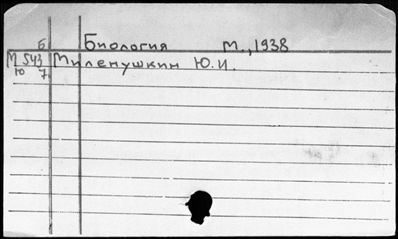 б Биология М., 1938
М 543 Миленушкин Ю.И.
Ю 7